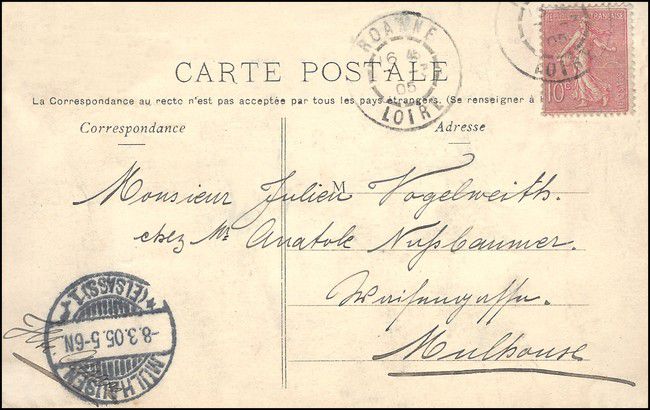 ROANNE
6
05
LOIRE
REPUBLIQUE FRANÇAISE
10c
05
LOIRE
CARTE POSTALE
La Correspondance au recto n'est pas acceptée par tous les pays étrangers. (Se renseigner à
Correspondance
Adresse
M
Monsieur Julien Vogelweith.
chez Mr Anatole Nußbaumer.
Waisengasse.
Mulhouse
MÜLHAUSEN
-8.3.05.5-6N
(ELSASS) 1.